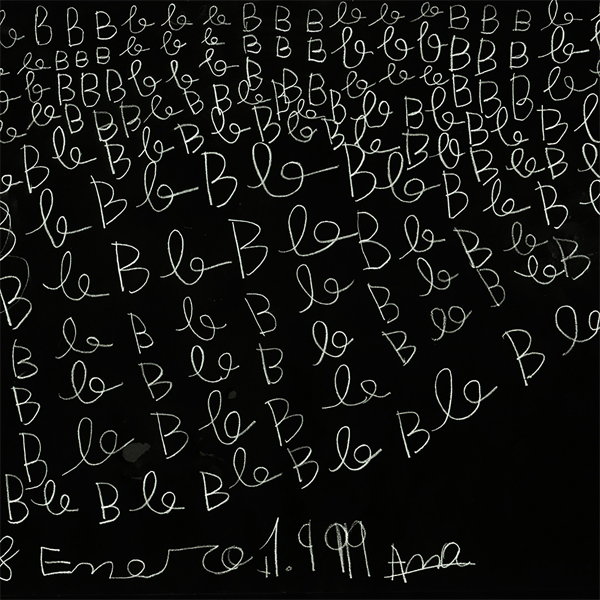 b B B B b b b B B B b b b B B B b b
b b B B B b b b B B B b b b B B B b
b b B B B b b b B B B b b b B B B b
b b B B B b B B b B b b B b B B b
B b B b B b B b B b B b B b B b
b b B b B b B b B b B b
B b B b B b B b B b B
B b B b B b B b B b B
B b B b B b B b
B b B b B b B b B b
B b B b B b B b B b
8 Enero 1.999 Ana